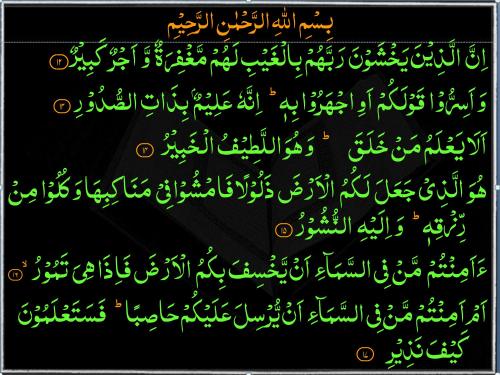 بِسْمِ اللهِ الرَّحْمٰنِ الرَّحِيْمِ
اِنَّ الَّذِيْنَ يَخْشَوْنَ رَبَّهُمْ بِالْغَيْبِ لَهُمْ مَّغْفِرَةٌ وَّ اَجْرٌ كَبِيْرٌ ۝۱۲
وَ اَسِرُّوْا قَوْلَكُمْ اَوِ اجْهَرُوْا بِهٖ ؕ اِنَّهٗ عَلِيْمٌۢ بِذَاتِ الصُّدُوْرِ ۝۱۳
اَلَا يَعْلَمُ مَنْ خَلَقَ ؕ وَ هُوَ اللَّطِيْفُ الْخَبِيْرُ ۝۱۴
هُوَ الَّذِيْ جَعَلَ لَكُمُ الْاَرْضَ ذَلُوْلًا فَامْشُوْا فِيْ مَنَاكِبِهَا وَ كُلُوْا مِنْ
رِّزْقِهٖ ؕ وَ اِلَيْهِ النُّشُوْرُ ۝۱۵
ءَاَمِنْتُمْ مَّنْ فِي السَّمَآءِ اَنْ يَّخْسِفَ بِكُمُ الْاَرْضَ فَاِذَا هِيَ تَمُوْرُ ۙ۝۱۶
اَمْ اَمِنْتُمْ مَّنْ فِي السَّمَآءِ اَنْ يُّرْسِلَ عَلَيْكُمْ حَاصِبًا ؕ فَسَتَعْلَمُوْنَ
كَيْفَ نَذِيْرِ ۝۱۷